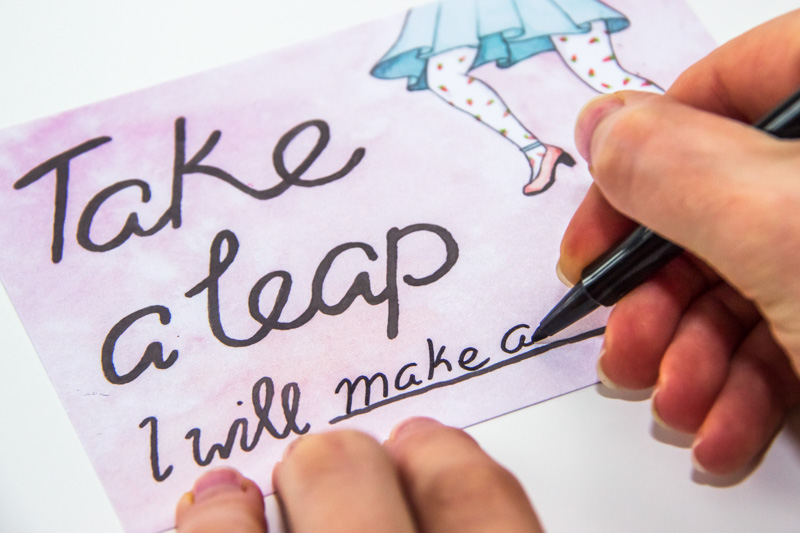 Take
a leap
I will make a